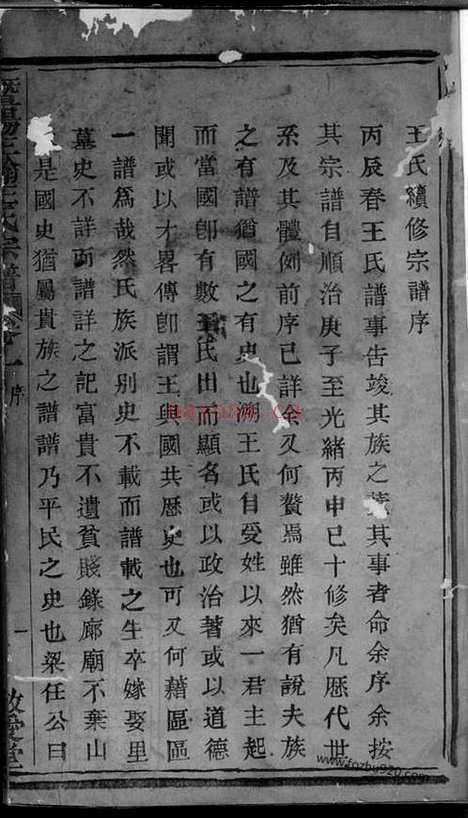 王氏續修宗譜序
丙辰春王氏譜事告竣其族之董其事者命余序余按
其宗譜自順治庚子至光緒丙申已十修矣凡歷代世
系及其體例前序已詳余又何贅焉雖然猶有說夫族
之有譜猶國之有史也溯王氏自受姓以來一君主起
而當國卽有數王氏出而顯名或以政治著或以道德
聞或以才畧傳卽謂王與國共歷史也可又何藉區區
一譜爲哉然氏族派別史不載而譜載之生卒嫁娶里
墓史不詳而譜詳之記富貴不遺貧賤錄廊廟不棄山
是國史猶屬貴族之譜譜乃平民之史也梁任公曰
王氏宗譜
序
一
敬愛堂
nayona.cn
www.fozhu920.com